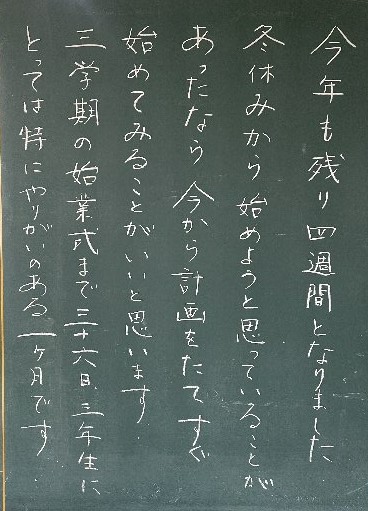 今年も残り四週間となりました.
冬休みから 始めようと思っていることが
あったなら 今から計画をたて すぐ
始めてみることがいいと思います.
三学期の始業式まで三十六日. 三年生に
とっては特にやりがいのある一ケ月です.